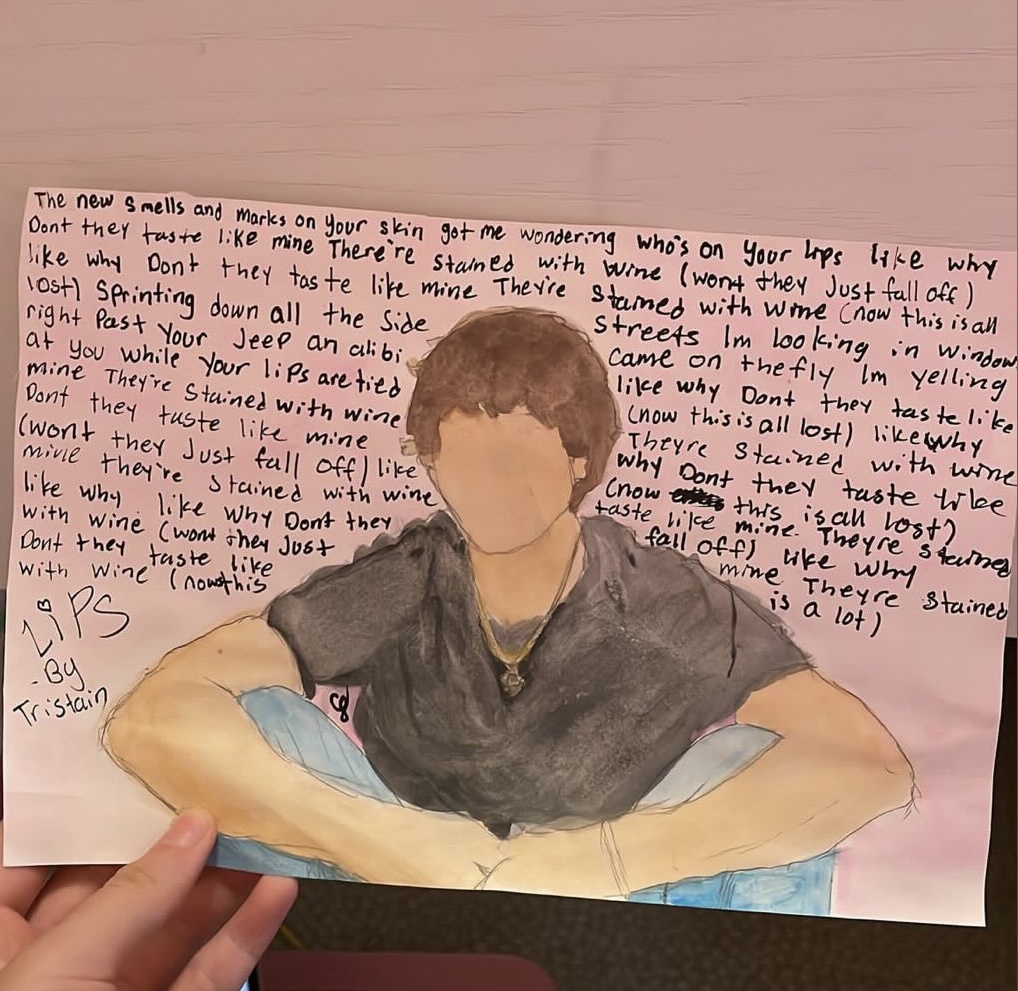 The new smells and marks on your skin got me wondering who's on your lips like why
Dont they taste like mine There're stained with wine (wont they Just fall off)
like why Dont they taste like mine They're stained with wine (now this is all
lost) Sprinting down all the side streets Im looking in window
right past your Jeep an alibi came on the fly Im yelling
at you while your lips are tied like why Dont they taste like
mine They're stained with wine (now this is all lost) like why
Dont they taste like mine Theyre stained with wine
(wont they Just fall off) like why Dont they taste like
mine they're stained with wine (now this is all lost)
like why like why Dont they taste like mine. Theyre stained
with wine (wont they Just fall off) like why
Dont they taste like mine Theyre stained
with wine (now this is a lot)
LiPS
-By
Tristain